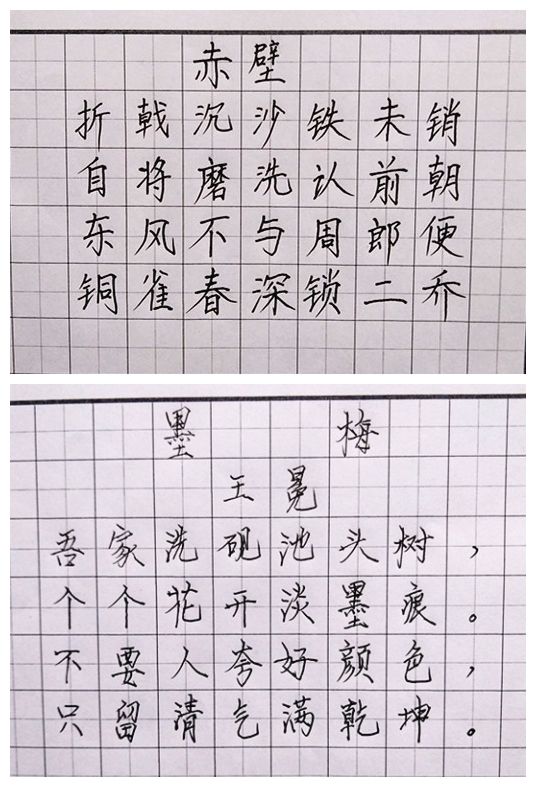 赤壁
折戟沉沙铁未销
自将磨洗认前朝
东风不与周郎便
铜雀春深锁二乔
墨梅
王冕
吾家洗砚池头树，
个个花开淡墨痕。
不要人夸好颜色，
只留清气满乾坤。